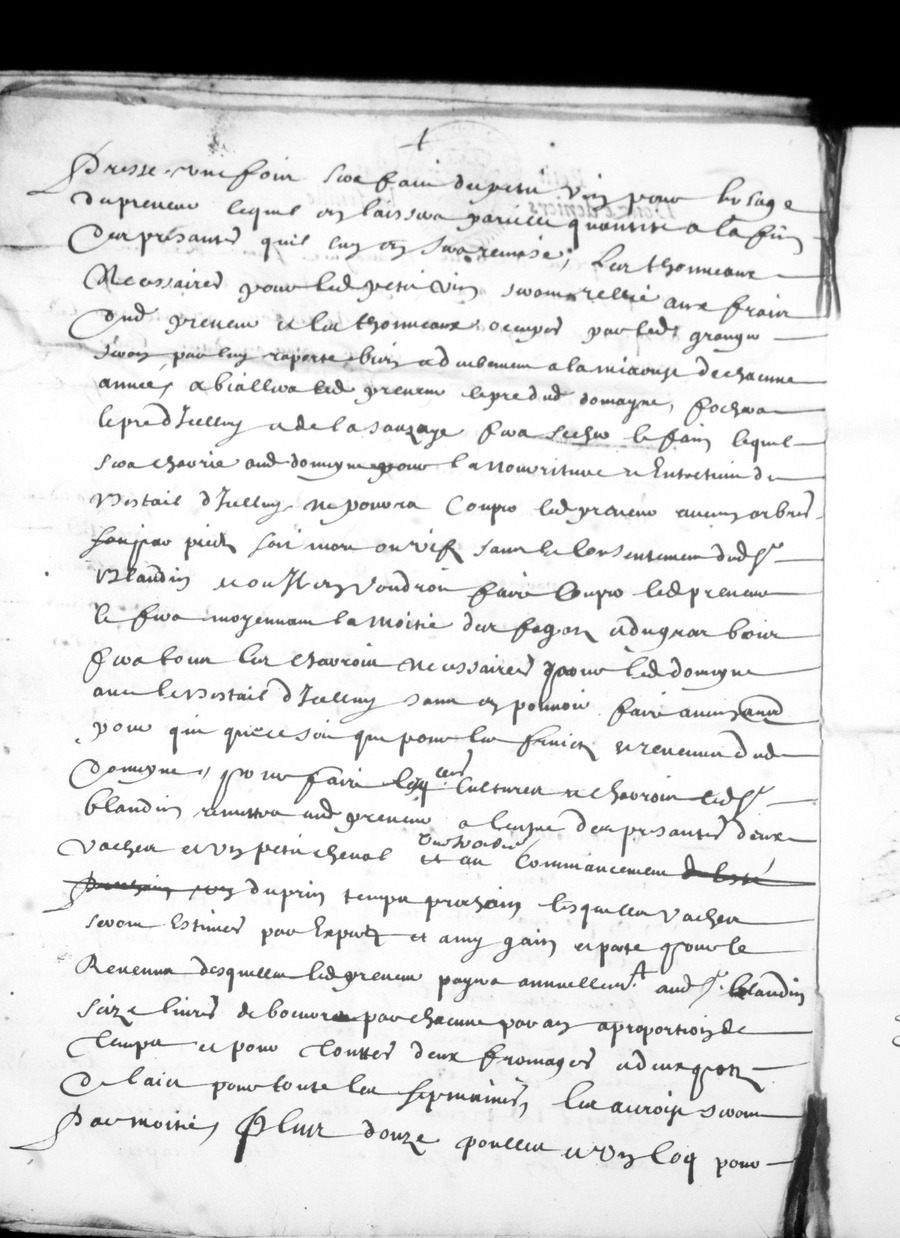 Presse une fois sera fait du petit vin pour l'usage
du preneur lequel en laissera pareille quantité a la fin
des présantes qu'il luy en sera remise; les thonneaux
Necessaires pour led petit vin seront rellié aux frais
dud preneur et les thonneaux occupés par led granger
seront par luy raporté bien et duëbement a la miaoust de chacune
année, abiallera led preneur le pré dud domayne, fochera
le pré d'Iselluy et de la sauzaye fera secher le foin lequel
sera charié aud domayne pour la nourriture et Entretien du
Bestail d'Iselluy, ne pourra couper led preneur aucuns arbres
soit par pied soit mort ou vif sans le consentement dud Sr
Blandin et ou Il en voudroit faire couper led preneur
le fera moyennant la moitié des fagots
fera tous les charrois necessaires pour led domayne
avec le Bestail d'Iselluy sans en pouvoir faire aucun autre
pour qui que ce soit que pour les fruicts et revenus dud
Domayne, pour faire lesquelles cultures et charrois led Sr
blandin remettra aud preneur a l'entrée des présantes deux
vaches et un petit cheval et au commancement de l'esté
prochain du prin temps prochain lesquelles vaches
seront Estimées par Experts et a my gain et perte pour le
Revenu desquelles led preneur payera annuellemt aud Sr. blandin
seize livres de beourre par chacune par an a proportion du
Temps et pour touttes deux fromages
De lait pour toute les sepmaines, les acroist seront
Par moitié, Plus douze poullets et un coq pour